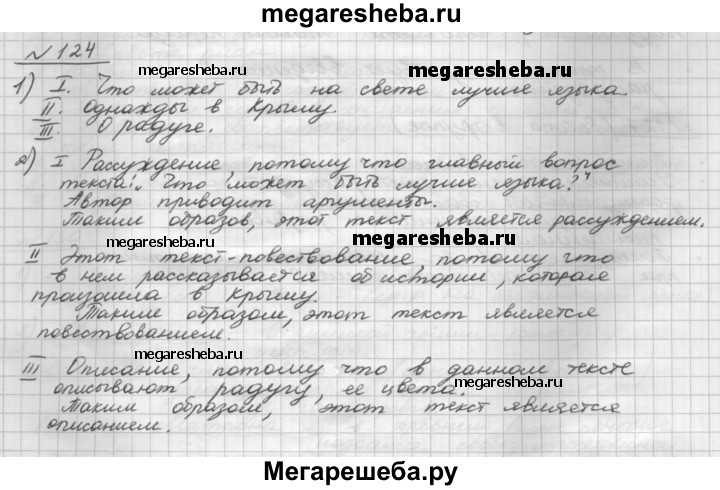 megaresheba.ru
№ 124
1) I. Что может быть на свете лучше языка
II. Однажды в Крыму.
III. О радуге.
2) I Рассуждение потому что главный вопрос
текста: „Что может быть лучше языка?"
Автор приводит аргументы.
Таким образов, этот текст является рассуждением.
II Этот текст-повествование, потому что
в нем рассказывается об истории, которае
произошла в Крыму.
Таким образом, этот текст является
повествованием.
III Описание, потому что в данном тексте
описывают радугу, ее цвета.
Таким образом, этот текст является
описанием.
megaresheba.ru
megaresheba.ru
megaresheba.ru
megaresheba.ru
megaresheba.ru
megaresheba.ru
Мегарешеба.ру